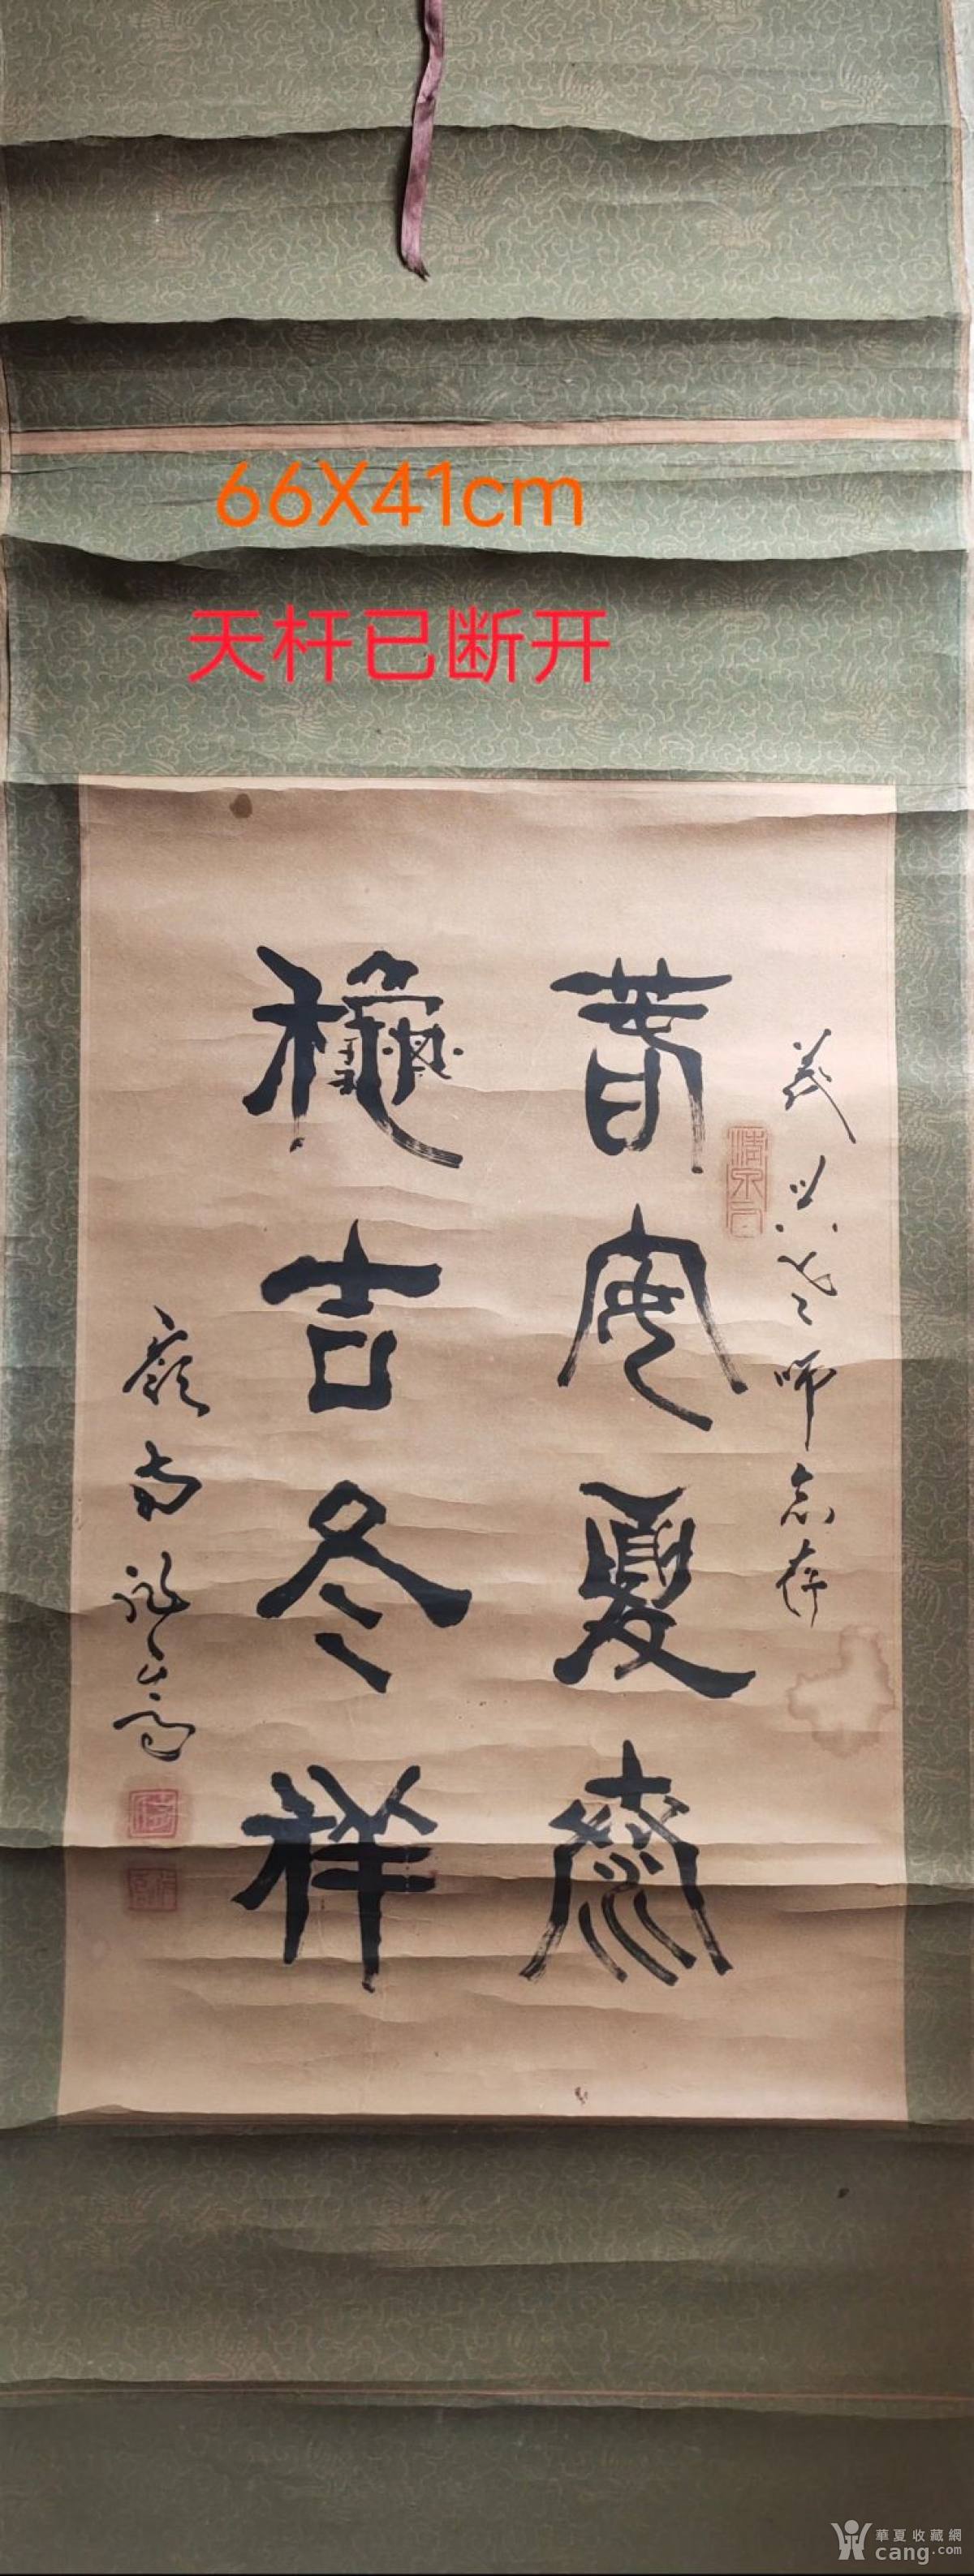 66X41cm
天杆已断开
老師念存
春安夏泰
龝吉冬祥
嶺南
華夏收藏網
cang.com